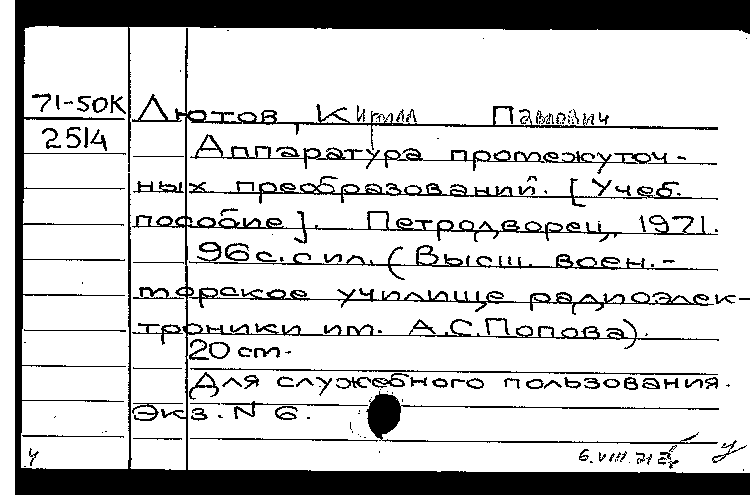 71-50К Лютов, Кирилл Павлович
2514
Аппаратура промежуточ-
ных преобразований. [Учеб.
пособие]. Петродворец, 1971.
96 с. с ил. (Высш. воен.-
морское училище радиоэлек-
троники им. А.С.Попова).
20 см.
Для служебного пользования.
Экз. N 6.
6.VIII.71